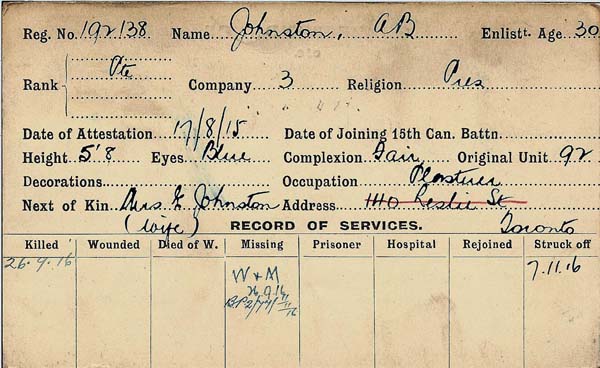 Reg. No. 192138 Name Johnston, AB Enlistt. Age 30
Rank Pte Company 3 Religion Pres
Date of Attestation 17/8/15 Date of Joining 15th Can. Battn.
Height 5'8 Eyes Blue Complexion Fair Original Unit 92
Decorations Occupation Plasterer
Next of Kin Mrs. E Johnston Address 1440 Leslie St
(wife) RECORD OF SERVICES. Toronto
Killed Wounded Died of W. Missing Prisoner Hospital Rejoined Struck off
26.9.16 W & M 7.11.16
26.9.16